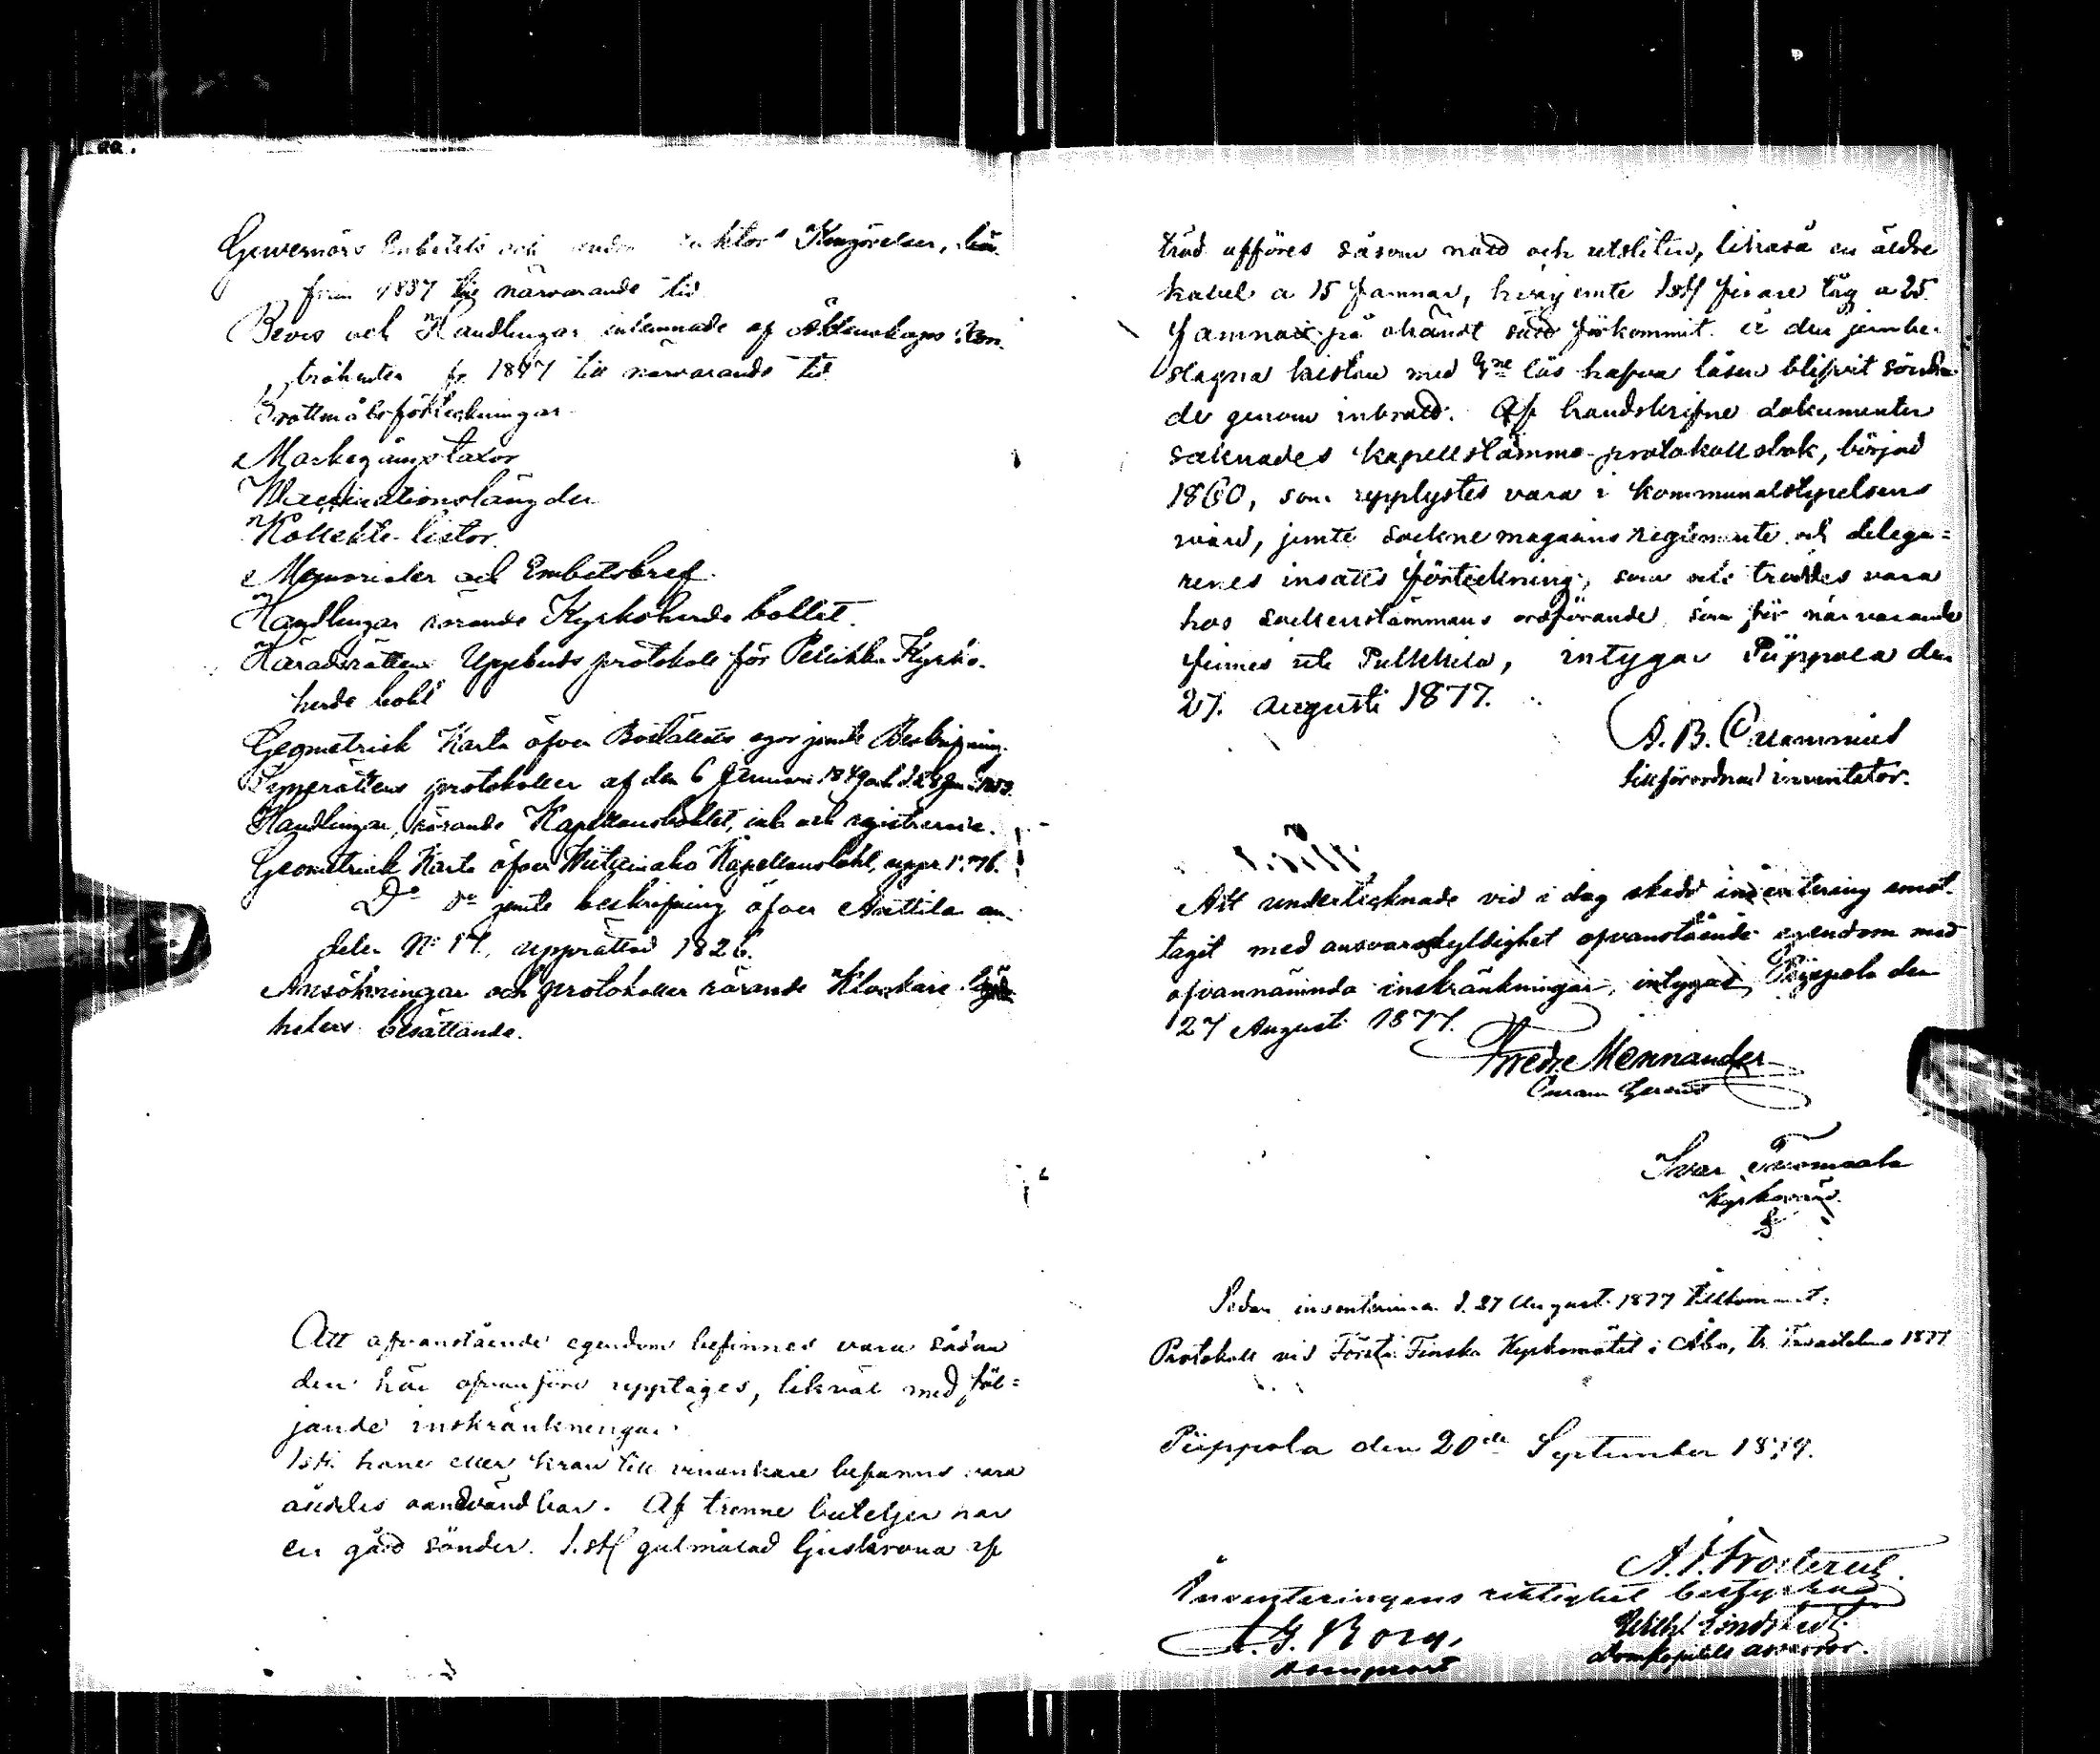 Guvernörs Embetets och andra Kungörelser,
från 1837 till närvarande tid
Bevis och Handlingar inlemnade af Äktenskaps kon-
trahenter fr. 1847 till närvarande tid
Brottmålsförteckningar
Markegångstaxor
Vaccinationslängder
Kollekte-listor.
Memorialer och Embetsbref.
Handlingar rörande Kyrkoherde bollet.
Häradsrättens Uppbuds protokoll för Kyrko-
herde bohl
Geometrisk Karta öfver Boställets egor jemte Beskrifning.
Synerättens protokoller af den 6
Handlingar, rörande Kapellansbohlet,
Geometrisk Karta öfver Kapellansbohl, uppr.
Do do jemte beskrifning öfver Anttila an-
delen No 17, upprättad 1826.
Ansökningar och protokoller rörande Klockare
hetens besättande.
Att ofvanstående egendom befinnes vara sådan
den här ofvanföre upptages, likväl med föl=
jande inskränkningar:
1 st. krane eller kran till vinankare befanns vara
alldeles oandvändbar. Af trenne buteljer har
en gått sönder. 1. st gulmålad ljuskrona af
träd afföres såsom nött och utsliten, likaså en äldre
kabel a 15 famnar, hvarjemte 1 st finare tåg a 25
famnar på okändt sätt förkommit. Å den jernbe-
slagna kistan med 3ne lås hafva låsen blifvit sönder
de genom inbrott. Af handskrifne dokumenter
saknades kapellstämmo-protokollsbok, börjad
1860, som upplystes vara i kommunalstyrelsens
vård, jemte sockne magasins reglemente och delega=
renes insatts förteckning, som ock troddes vara
hos sockenstämmans ordförande, som för närvarande
finnes ute Pulkkila, intygar Piippola den
27. augusti 1877.
A. B. Calamnius
tillförordnad inventator.
Att undertecknade vid i dag skedd inventering emot-
tagit med ansvarskyldighet ofvanstående egendom med
ofvannämnda inskränkningar, intygas, Piippola den
27 Augusti 1877.
Fredr. Mennander
Curam Gerens
Ivar Tuomaala
Kyrkovärd.
Sedan inventeringen d. 27 August. 1877 tillkommit:
Protokoll vid Första Finska Kyrkomötet i Åbo, tr. 1877
Piippola den 20de September 1879.
A. J. Frosterus.
Inventeringens riktighet bestyrka
A. G. Borg,
domprost
Wilh. Lindstedt.
Domkapitels assessor.